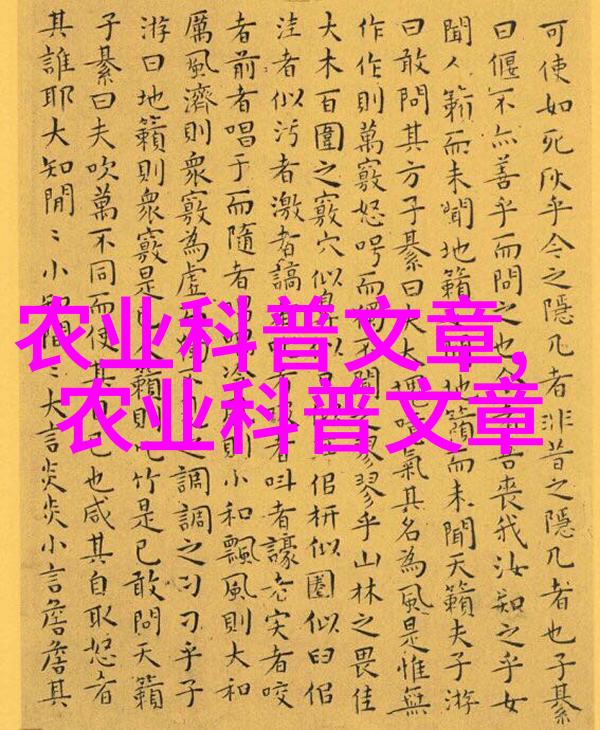 可使如死灰乎今之隱几者非昔之隱几者也子綦
曰偃不亦善乎而問之也吾喪我汝知之乎女
聞人籟而未聞地籟聞地籟而未聞天籟夫子游
曰敢問其方子綦曰夫大塊噫氣其名為風是惟無
作作則萬竅怒呺而獨不聞翏翏乎山林之畏佳
大木百圍之竅穴似鼻似佀枅似圈似臼佀
洼者似污者激者謞者者叫者譹者宎者咬
者前者唱于而隨者則小和飄風則大和
厲風濟則衆竅為虛之調調之刁刁乎子
游曰地籟則衆竅是籟則比竹是已敢問天籟
子綦曰夫吹萬不同而使其己也咸其自取怒者
其誰耶大知閒〻小〻大言炎炎小言詹詹其
农业科普文章,
农业科普文章